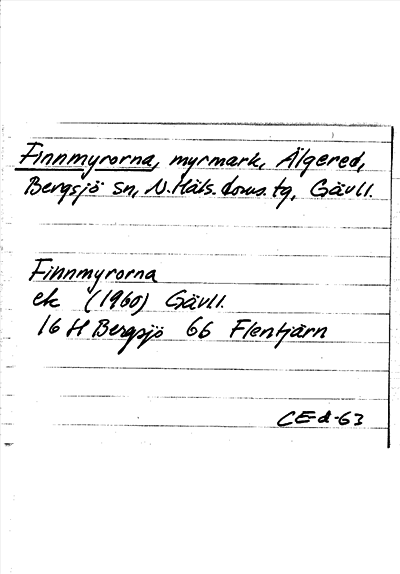 Finnmyrorna, myrmark, Älgered,
Bergsjö sn, N.Häls. doms. tg, Gävll.
Finnmyrorna
ek (1960) Gävll.
16 H Bergsjö 66 Flentjärn
CE-d-63